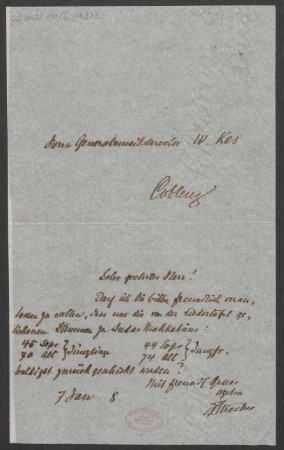 Herrn Generalmusikdirector W. Kes
Coblenz
Sehr geehrter Herr!
Darf ich Sie bitten freundlich veran-
lassen zu wollen, dass uns die von der Liedertafel ge-
liehenen Stimmen zu Judas Makkabäus:
45 Sopr } Jünglinge 44 Sopr } Jungfr.
70 Alt 74 Alt
baldigst zurückgeschickt werden?
Mit freundl. Gruss
7 Jan 8